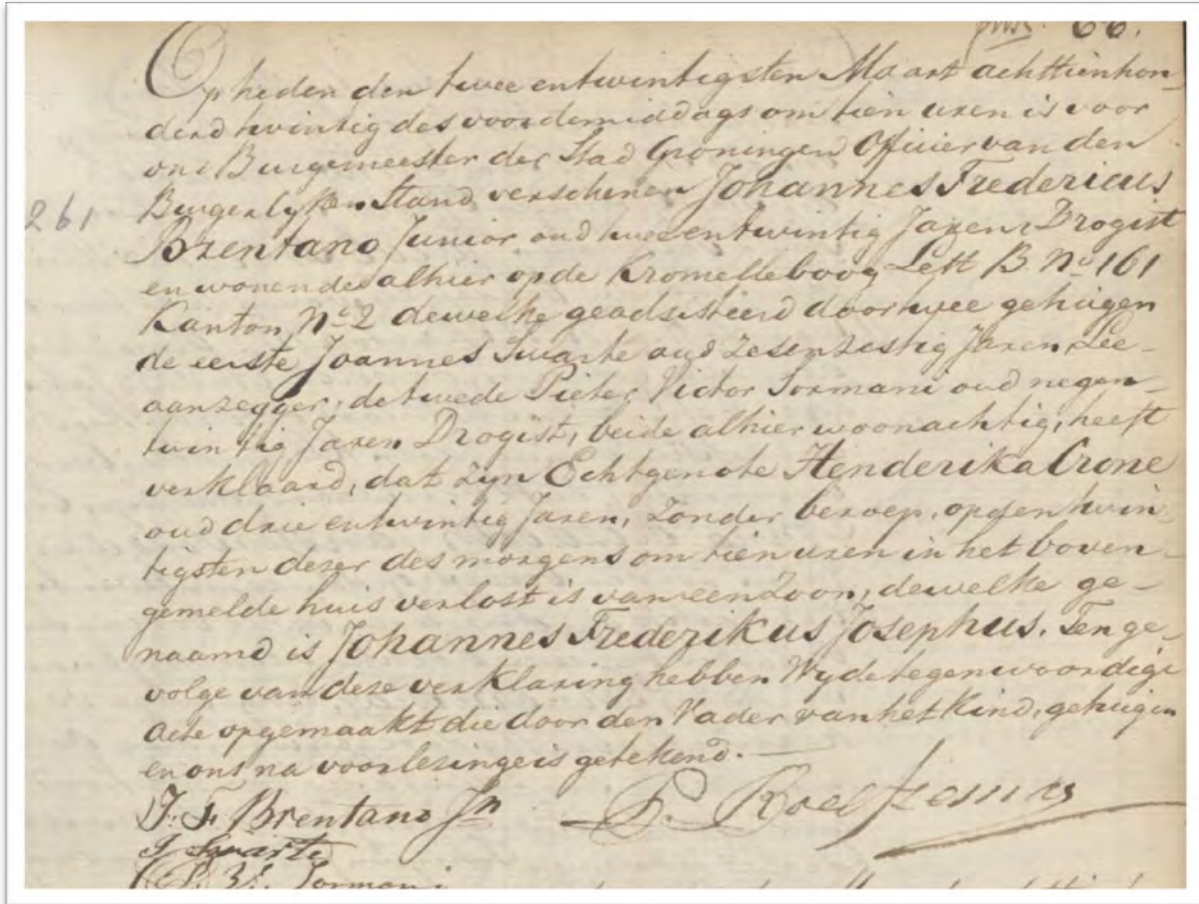 66.
Op heden den twee entwintigsten Maart achttienhon
derd twintig des voordemiddags om tien uren is voor
ons Burgemeester der Stad Groningen Officier van den
Burgerlyken Stand verschenen Johannes Fredericus
261
Brentano Junior oud twee entwintig Jaren, Drogist
en wonende alhier op de Kromelleboog Lett B. No 161
Kanton No 2 dewelke geadsisteerd door twee getuigen
de eerste Joannes Swarte oud zesenzestig Jaren, Lee-
aanzegger, de twede Pieter Victor Sormani oud negen-
twintig Jaren Drogist, beide alhier woonachtig, heeft
verklaard, dat zyn Echtgenote Henderika Crone
oud drie entwintig Jaren, zonder beroep, op den twin
tigsten dezer des morgens om tien uren in het boven-
gemelde huis verlost is van een Zoon, dewelke ge-
naamd is Johannes Frederikus Josephus. Ten ge-
volge van deze verklaring hebben Wy de tegenwoordige
acte opgemaakt die door den Vader van het Kind, getuigen
en ons na voorlezinge is getekend.
J. F. Brentano Jn
J Swarte
P. V. Sormani